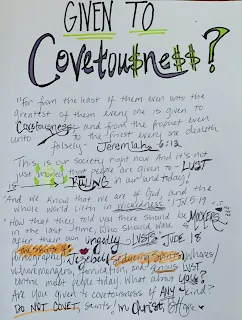 GIVEN TO
Covetou$ne$$?
"For from the least of them even unto the
greatest of them every one is given to
Covetousness; and from the prophet even
unto the priest every one dealeth
falsely" Jeremiah 6:13
This is our society right now. And it's not
just money that people are given to. LUST
IS RULING in our land today!
"And we know that we are of God, and the
whole world lieth in wickedness." 1 JN 5:19
"How that they told you there should be MOCKERS
in the last time, who should walk
after their own ungodly LUSTS" JUDE 18
The spirits of
pornography, Jezebel, seducing spirits, whores/
whoremongers, fornication, and
control most people today. What about YOU?
Are you given to covetousness of ANY kind?
DO NOT COVET, saints! In Christ,